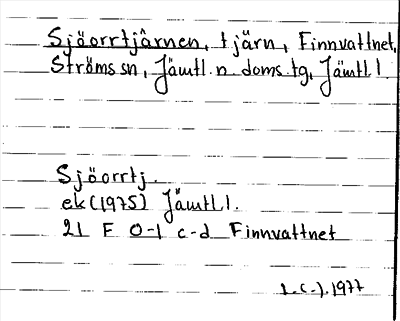 Sjöorrtjärnen, tjärn, Finnvattnet,
Ströms sn, Jämtl. n. doms.tg, Jämtl. l
Sjöorrtj.
ek (1975) Jämtl. l.
21 F 0-1 c-d Finnvattnet
1977